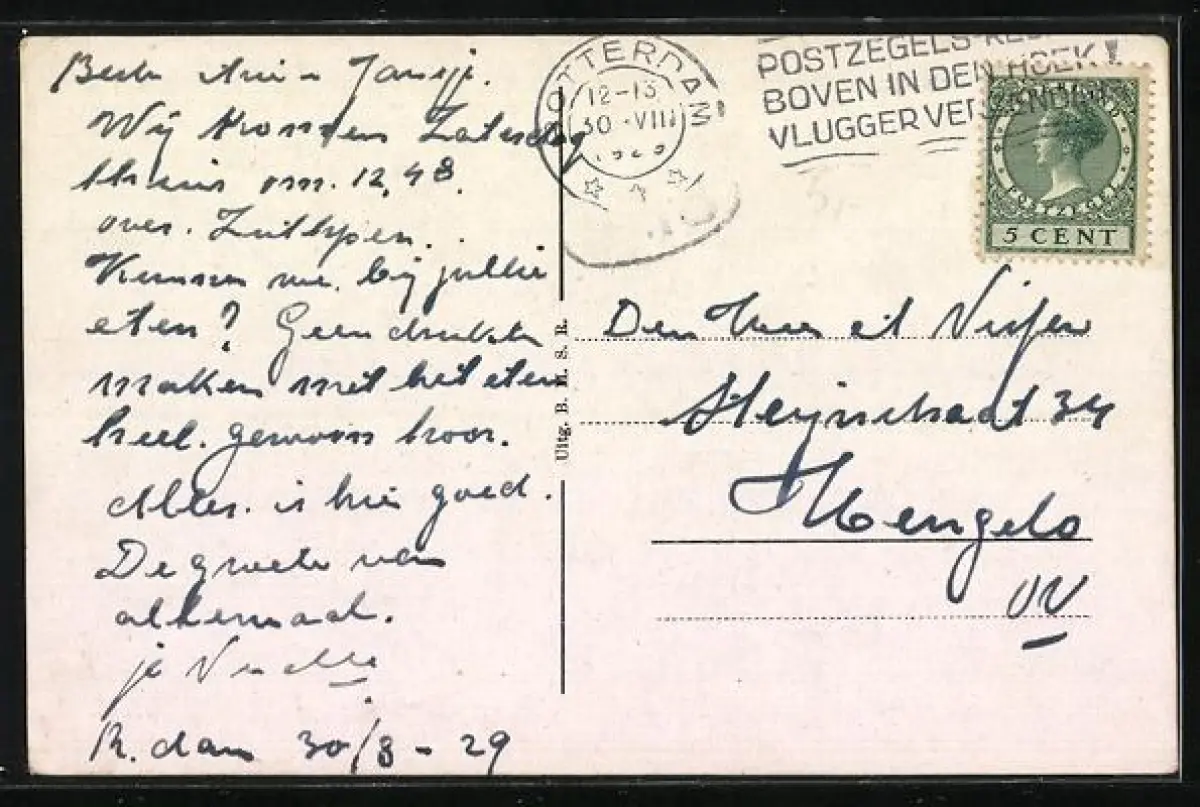 Beste
Wij komen Zaterdag
thuis om. 12,48.
over. Zutphen.
Kunnen we. bij jullie
eten? Geen drukte
maken met het eten
heel. gewoon hoor.
Alles. is hier goed.
De groeten van
allemaal.
je
R.dam 30/8 - 29
ROTTERDAM
12-13
30 VIII
1929
POSTZEGELS
BOVEN IN DEN HOEK!
VLUGGER VERZENDING
POSTZEGEL
5 CENT
Uitg. B. H. S. R.
Den Heer
34
Hengelo
OV